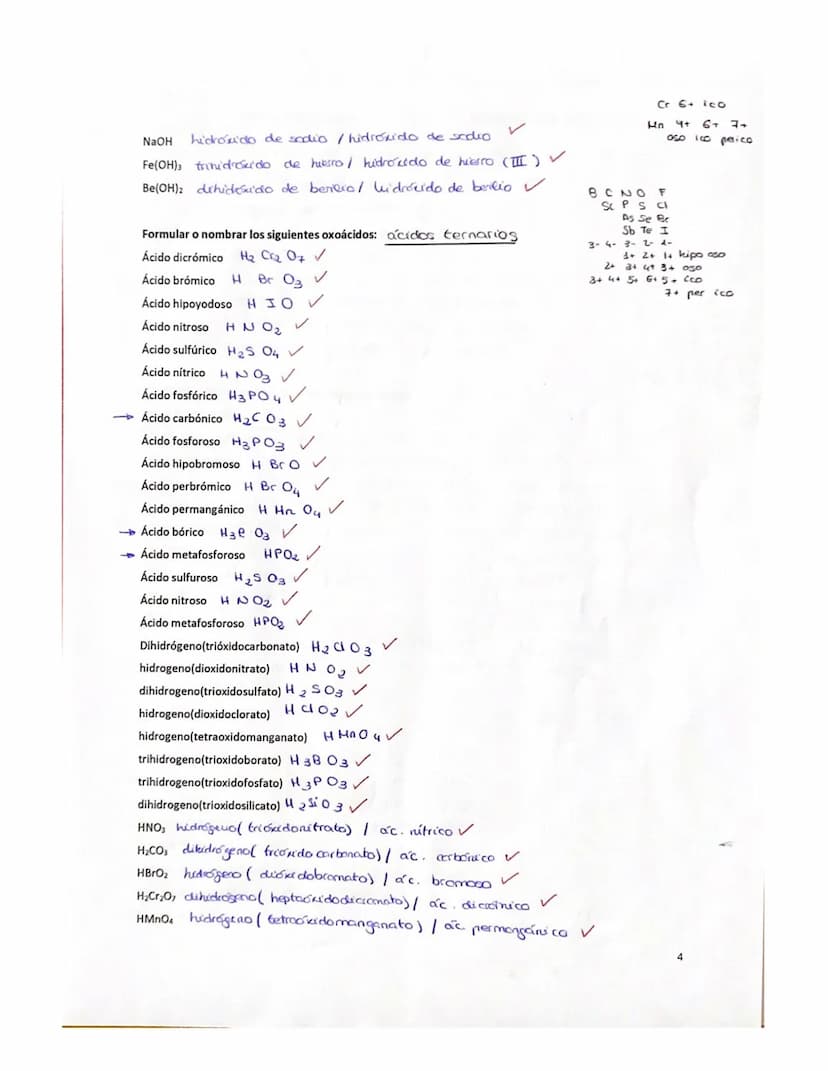 Cr 6+ ico
Mn 4+ 6+ 7+
oso ico perico
NaOH hidróxido de sodio / hidróxido de sodio ✓
Fe(OH)₃ trihidróxido de hierro / hidróxido de hierro (III) ✓
Be(OH)₂ dihidróxido de berilio / hidróxido de berilio ✓
B C N O F
Si P S Cl
As Se Br
Sb Te I
3- 4- 3- 2- 1-
1+ 2+ 1+ hipo oso
2+ 3+ 4+ 3+ oso
3+ 4+ 5+ 6+ 5+ ico
7+ per ico
Formular o nombrar los siguientes oxoácidos: ácidos ternarios
Ácido dicrómico H₂ Cr₂ O₇ ✓
Ácido brómico H Br O₃ ✓
Ácido hipoyodoso H I O ✓
Ácido nitroso H N O₂ ✓
Ácido sulfúrico H₂S O₄ ✓
Ácido nítrico H N O₃ ✓
Ácido fosfórico H₃PO₄ ✓
→ Ácido carbónico H₂C O₃ ✓
Ácido fosforoso H₃PO₃ ✓
Ácido hipobromoso H Br O ✓
Ácido perbrómico H Br O₄ ✓
Ácido permangánico H Mn O₄ ✓
→ Ácido bórico H₃B O₃ ✓
→ Ácido metafosforoso HPO₂ ✓
Ácido sulfuroso H₂S O₃ ✓
Ácido nitroso H N O₂ ✓
Ácido metafosforoso HPO₂ ✓
Dihidrógeno(trióxidocarbonato) H₂ Cl O₃ ✓
hidrogeno(dioxidonitrato) H N O₂ ✓
dihidrogeno(trioxidosulfato) H₂SO₃ ✓
hidrogeno(dioxidoclorato) H Cl O₂ ✓
hidrogeno(tetraoxidomanganato) H Mn O₄ ✓
trihidrogeno(trioxidoborato) H₃B O₃ ✓
trihidrogeno(trioxidofosfato) H₃P O₃ ✓
dihidrogeno(trioxidosilicato) H₂Si O₃ ✓
HNO₃ hidrógeno( trióxidonitrato) / ác. nítrico ✓
H₂CO₃ dihidrógeno( trióxido carbonato) / ác. carbónico ✓
HBrO₂ hidrógeno ( dióxidobromato) / ác. bromoso ✓
H₂Cr₂O₇ dihidrógeno( heptaóxidodicromato) / ác. dicrómico ✓
HMnO₄ hidrógeno ( tetraóxidomanganato) / ác. permangánico ✓
4